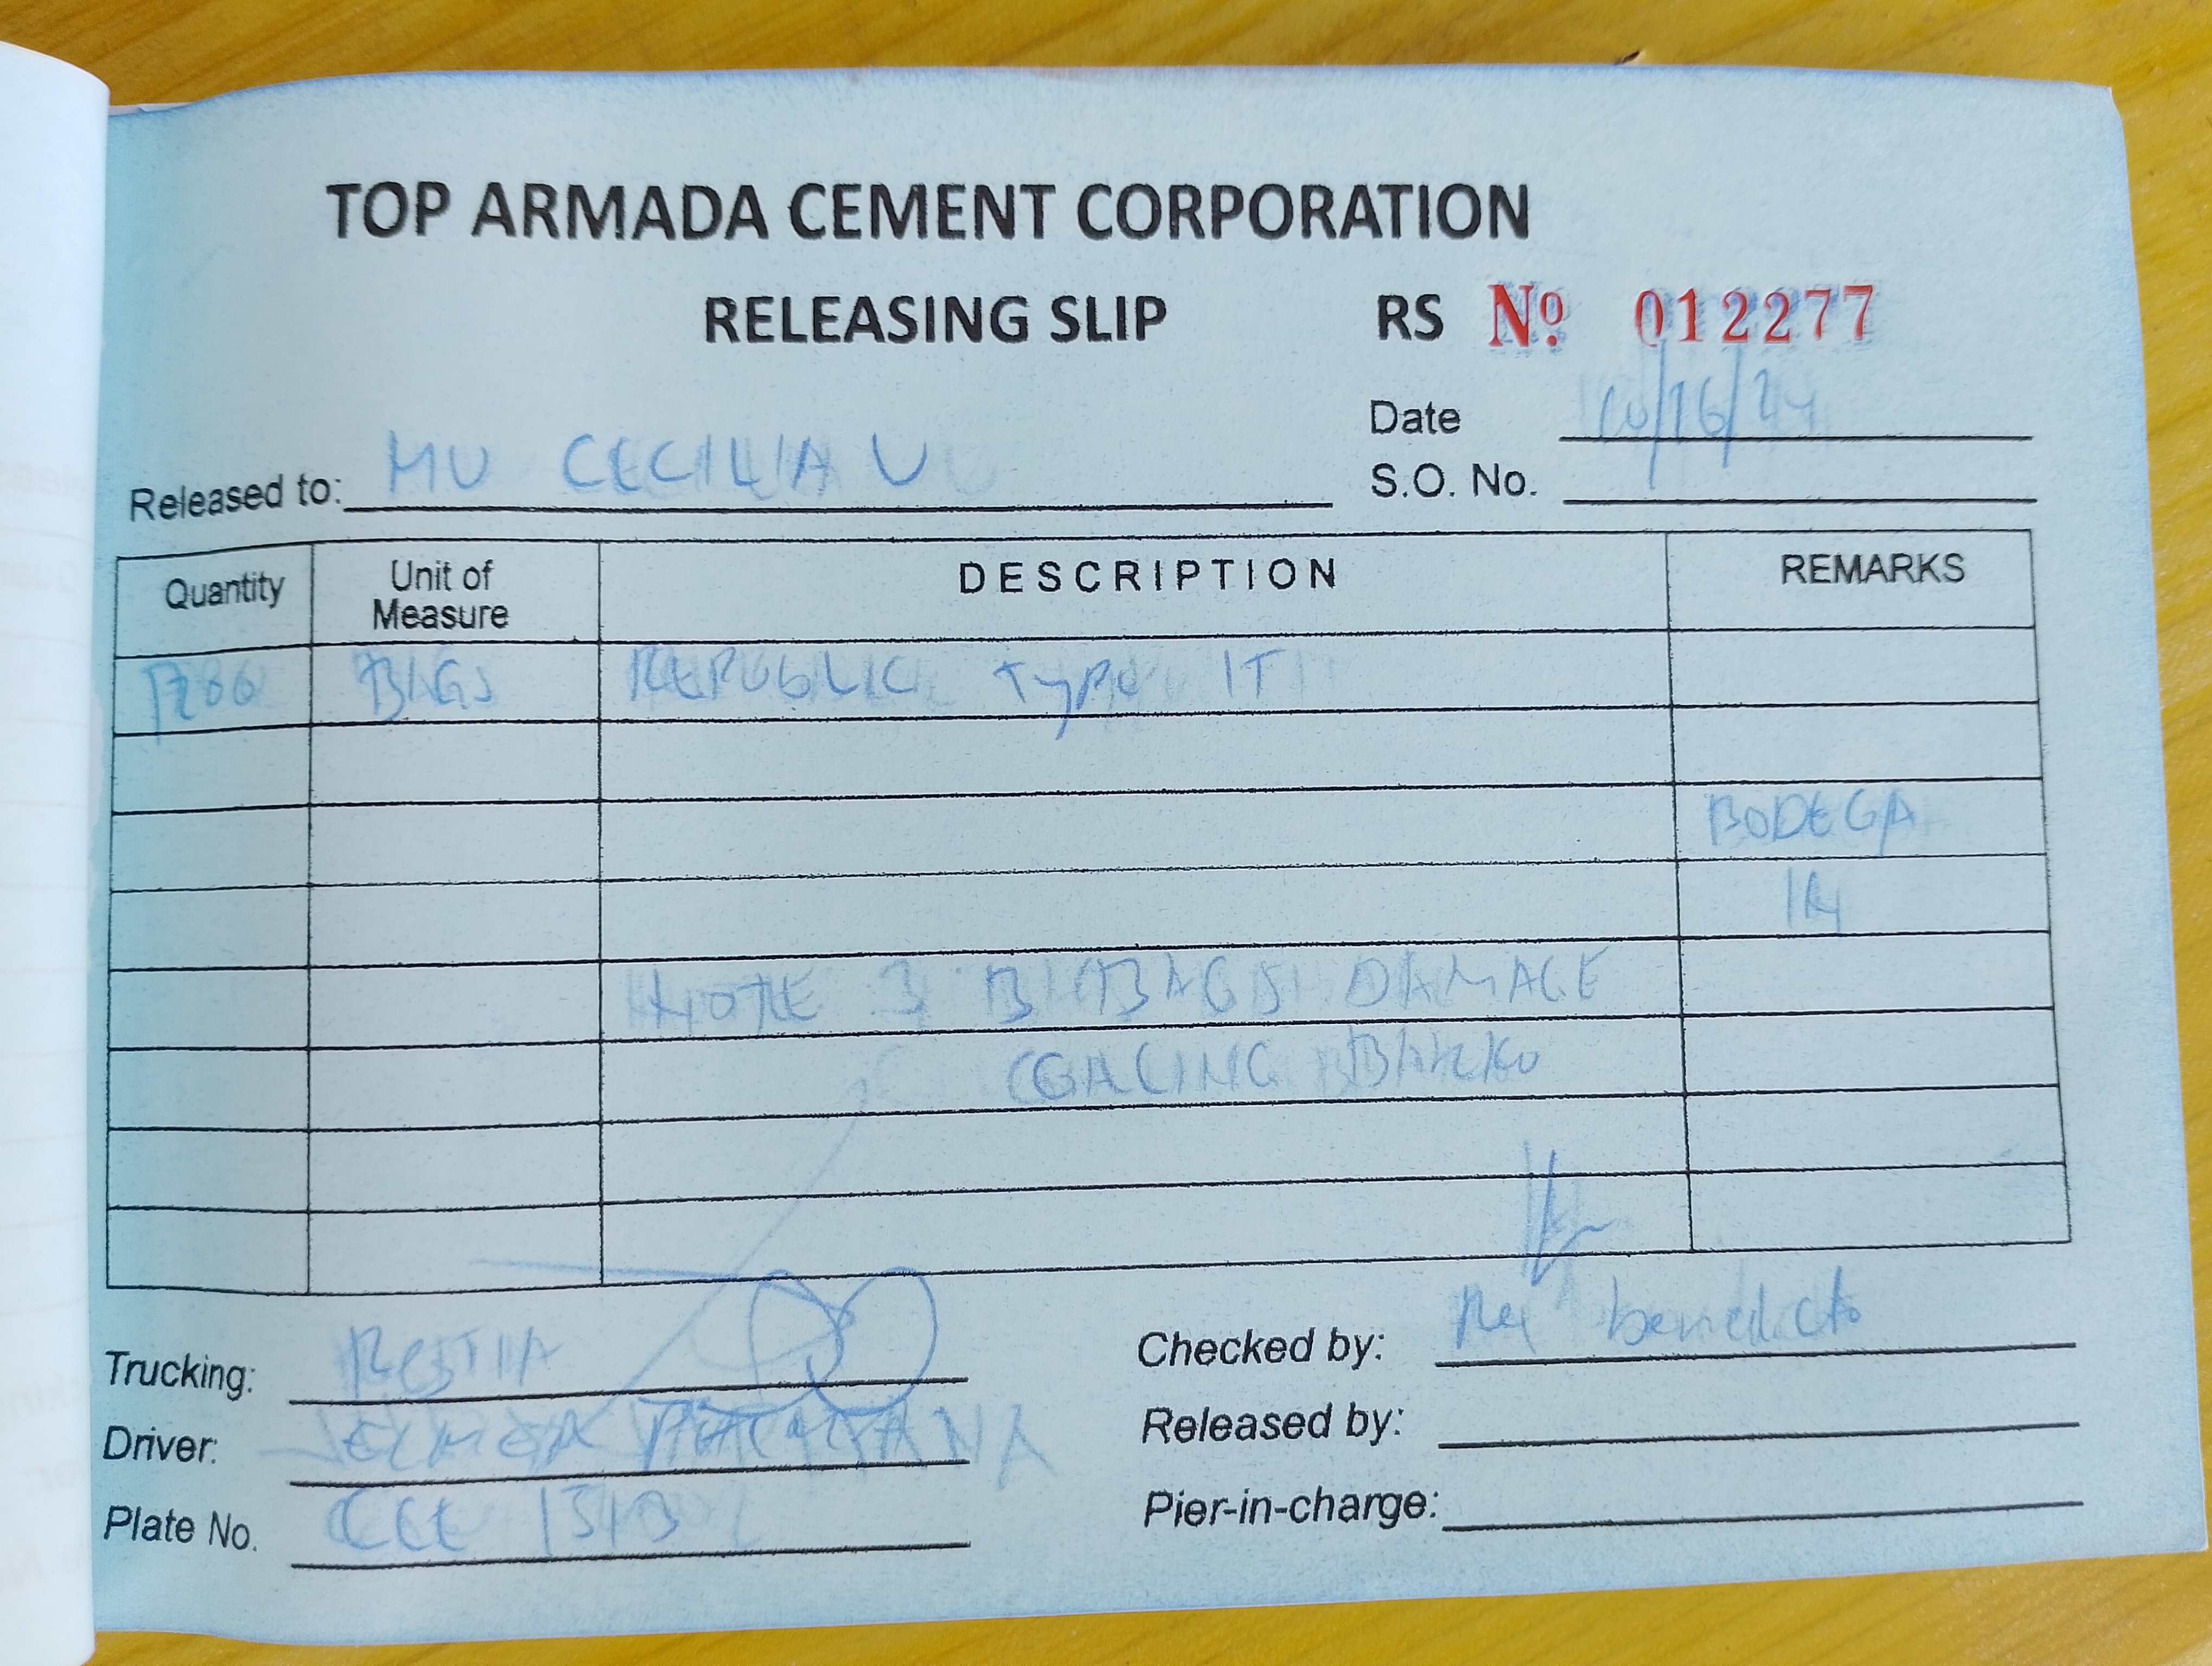 TOP ARMADA CEMENT CORPORATION
RELEASING SLIP RS Nº 012277
Date 10/16/24
Released to: MV CECILIA V
S.O. No.
Quantity Unit of Measure DESCRIPTION REMARKS
BAGS REPUBLIC TYPE IT
BODEGA
IN
NOTE 3 BAGS DAMAGE
(GALING BARKO
Trucking: Checked by: Rex benedicto
Driver: Released by:
Plate No. Pier-in-charge: